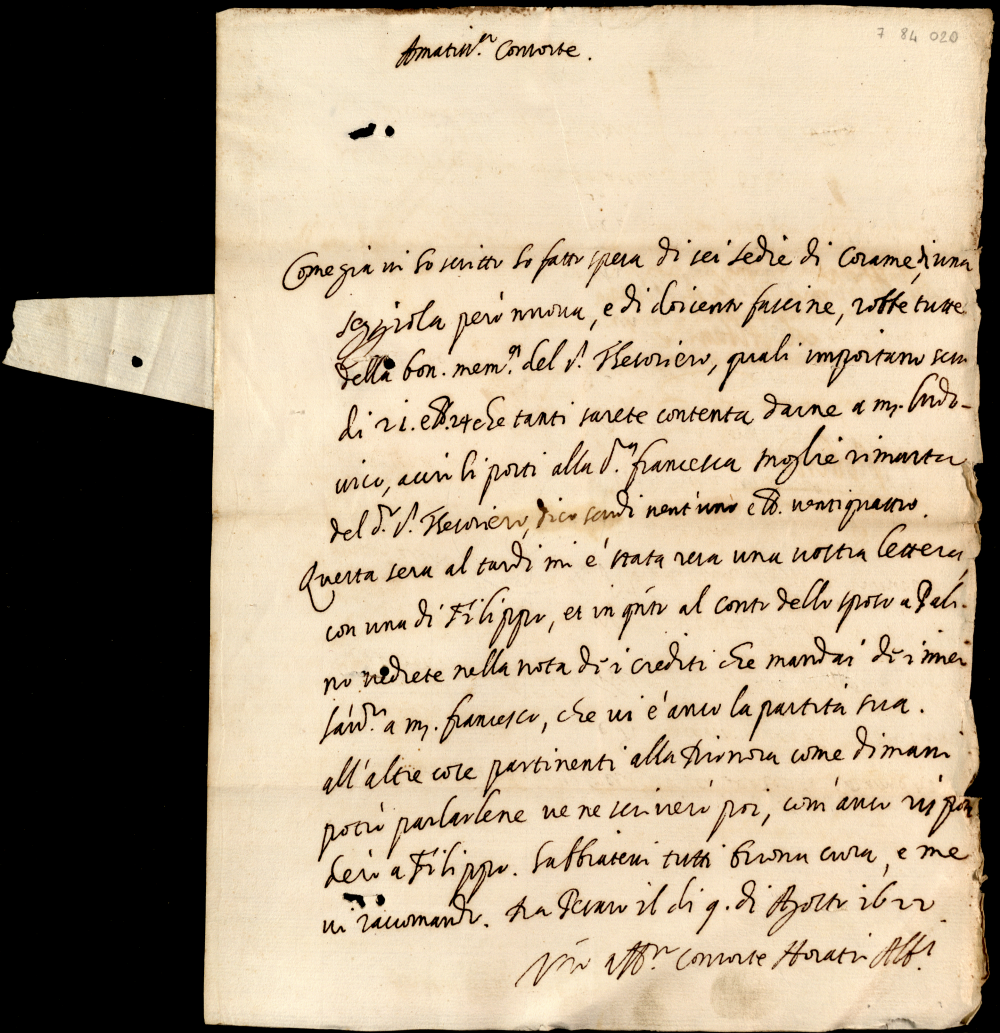 7 84 020
Amatiss.ᵃ Consorte.
Come già vi hò scritto hò fatto spesa di sei sedie di Corame, di una
però nuova, e di doicento fascine, robbe tutte
della bon. mem.ᵃ del S.ʳ Thesoriero, quali importano scu
di 21. e b. 24 che tanti sarete contenta darne a m. Ludo-
vico, acciò li porti alla S.ʳᵃ Francesca moglie rimasta
del d.º S.ʳ Thesoriero, dico scudi vent'uno e b. ventiquattro.
Questa sera al tardi mi è stata resa una vostra lettera,
con una di Filippo, et in q.nto al conto dello sposo a Pali-
no vedrete nella nota dè i crediti che mandai dè i miei
a m. Francesco, che vi è anco la partita sua.
all'altre cose partinenti alla come dimani
potrò parlarlene ve ne scriverò poi, com'anco rispon
derò a Filippo. Habbiatevi tutti buona cura, e me
vi raccomando. Da Pesaro il dì 9. di Agosto 1622
V̄ro aff.ᵐᵒ Consorte Horatio Alb.ⁱ